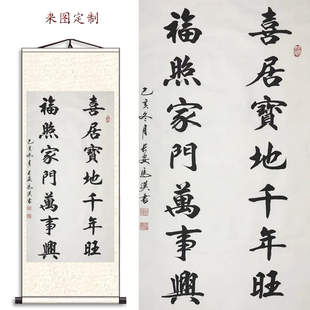 来图定制
喜居寳地千年旺
福照家門萬事興
己亥冬月长安
喜居寳地千年旺
福照家門萬事興
己亥冬月长安